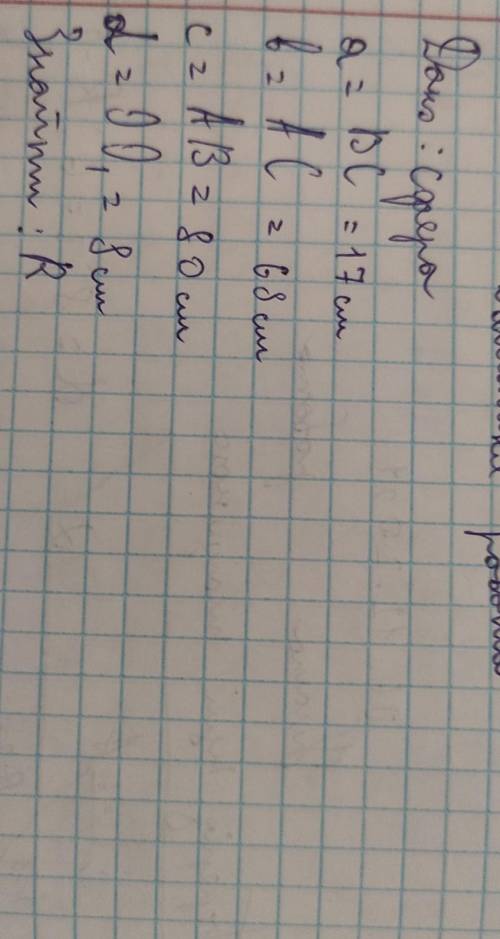 Дано: Сфера
a = BC = 17 см
b = AC = 68 см
c = AB = 80 см
d = OO₁ = 8 см
Знайти: R